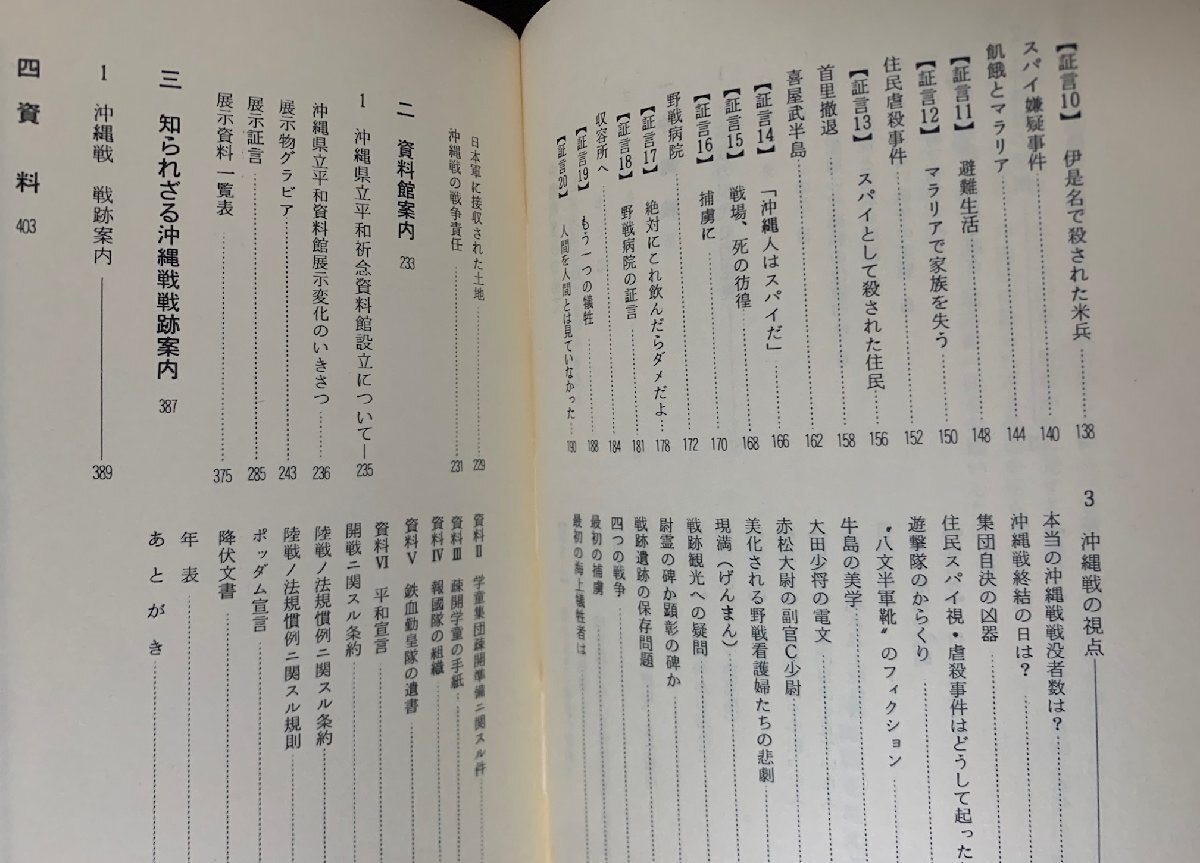 【証言10】 伊是名で殺された米兵 138
スパイ嫌疑事件 140
飢餓とマラリア 144
【証言11】 避難生活 148
【証言12】 マラリアで家族を失う 150
住民虐殺事件 152
【証言13】 スパイとして殺された住民 156
首里撤退 158
喜屋武半島 162
【証言14】 「沖縄人はスパイだ」 166
【証言15】 戦場、死の彷徨 168
【証言16】 捕虜に 170
野戦病院 172
【証言17】 絶対にこれ飲んだらダメだよ 178
【証言18】 野戦病院の証言 181
収容所へ 184
【証言19】 もう一つの犠牲 188
【証言20】 人間を人間とは見ていなかった 190
3 沖縄戦の視点
本当の沖縄戦戦没者数は?
沖縄戦終結の日は?
集団自決の凶器
住民スパイ視・虐殺事件はどうして起った
遊撃隊のからくり
〝八文半軍靴〟のフィクション
牛島の美学
大田少将の電文
赤松大尉の副官C少尉
美化される野戦看護婦たちの悲劇
現満(げんまん)
戦跡観光への疑問
慰霊の碑か顕彰の碑か
戦跡遺跡の保存問題
四つの戦争
最初の捕虜
最初の海上犠牲者は
日本軍に接収された土地 229
沖縄戦の戦争責任 231
二 資料館案内 233
1 沖縄県立平和祈念資料館設立について 235
沖縄県立平和資料館展示変化のいきさつ 236
展示物グラビア 243
展示証言 285
展示資料一覧表 375
三 知られざる沖縄戦戦跡案内 387
1 沖縄戦 戦跡案内 389
四 資料 403
資料Ⅱ 学童集団疎開準備ニ関スル件
資料Ⅲ 疎開学童の手紙
資料Ⅳ 報國隊の組織
資料Ⅴ 鉄血勤皇隊の遺書
資料Ⅵ 平和宣言
開戦ニ関スル条約
陸戦ノ法規慣例ニ関スル条約
陸戦ノ法規慣例ニ関スル規則
ポッダム宣言
降伏文書
年表
あとがき